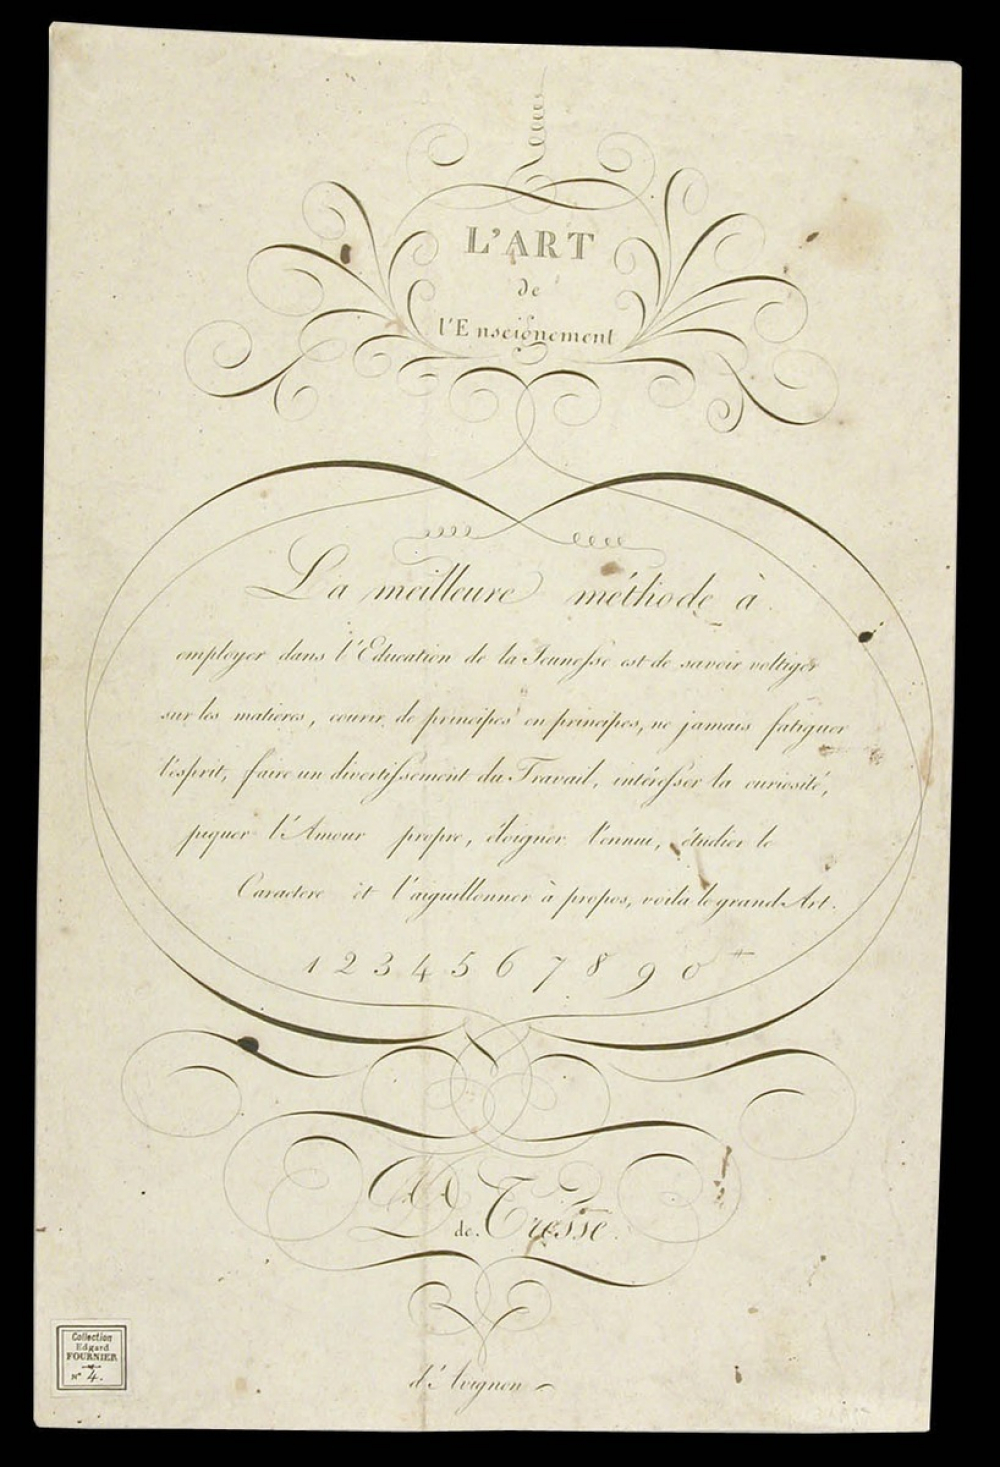 L'ART
de
l'Enseignement
La meilleure méthode à
employer dans l'Education de la Jeunesse est de savoir voltiger
sur les matieres, courir de principes en principes, ne jamais fatiguer
l'esprit, faire un divertissement du Travail, intéresser la curiosité,
piquer l'Amour propre, éloigner l'ennui, étudier le
Caractere et l'aiguillonner à propos, voila le grand Art.
1 2 3 4 5 6 7 8 9 0
de Tresse
d'Avignon
Collection
Edgard
FOURNIER
N° 4.